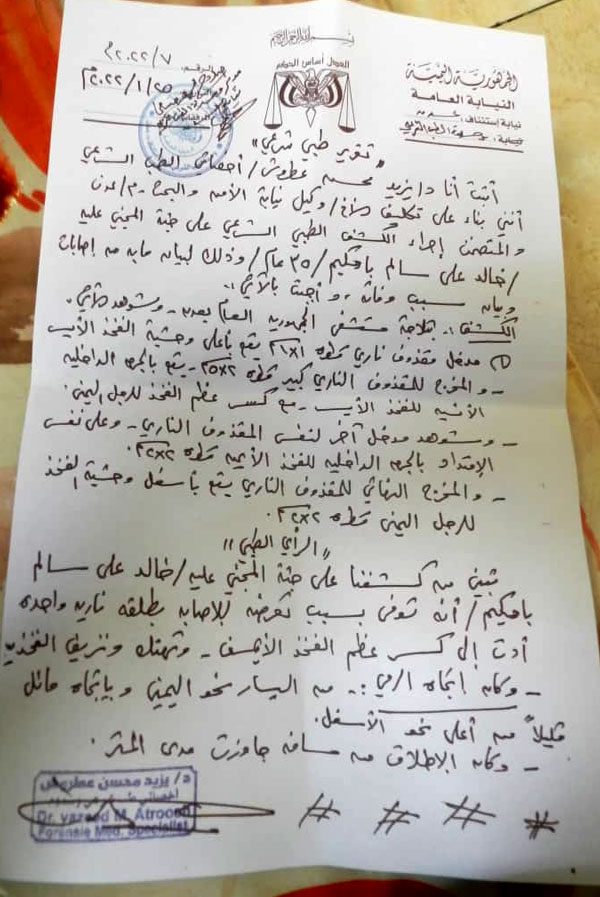 بسم الله الرحمن الرحيم
الجمهورية اليمنية
النيابة العامة
نيابة إستئناف: عدن
نيابة: الطب الشرعي
العدل أساس الحكم
الرقم: ٢٠٢٢/٧م
٢٠٢٢/١/٢٥م
"تقرير طبي شرعي"
أثبت أنا د/ يزيد محسن عطروش / أخصائي الطب الشرعي
أنني بناء على تكليف الأخ / وكيل نيابة الأمن والبحث - م/عدن
والمتضمن إجراء الكشف الطبي الشرعي على جثة المجني عليه
/ خالد علي سالم بافكيم / ٣٥ عام / وذلك لبيان ما به من إصابات
وبيان سبب وفاته، وأجبت بالآتي:
الكشف: بثلاجة مستشفى الجمهورية العام بعدن - وشوهد الآتي:
① مدخل مقذوف ناري قطره ١×١ سم يقع بأعلى وحشية الفخذ الأيسر
- والمخرج للمقذوف الناري كبير قطره ٢×٢٥ - يقع بالجهة الداخلية
الأنسية للفخذ الأيسر - مع كسر عظم الفخذ للرجل اليمنى.
- وشوهد مدخل آخر لنفس المقذوف الناري - وعلى نفس
الإمتداد بالجهة الداخلية للفخذ الأيمن قطره ٢×٢ سم.
- والمخرج النهائي للمقذوف الناري يقع بأسفل وحشية الفخذ
للرجل اليمنى قطره ٢×٢ سم.
"الرأي الطبي"
تبين من كشفنا على جثة المجني عليه / خالد علي سالم
بافكيم / أنه توفى بسبب تعرضه للإصابة بطلقه ناريه واحده
أدت إلى كسر عظم الفخذ - وتهتك ونزيف الفخذين
- وكان إتجاه الرمي: - من اليسار نحو اليمين وبإتجاه مائل
قليلاً من أعلى نحو الأسفل.
- وكان الإطلاق من مسافه جاوزت مدى المتر.
د/ يزيد محسن عطروش
Dr. yazeed M. Atroosh
Forensic Med. Specialist
# # # #